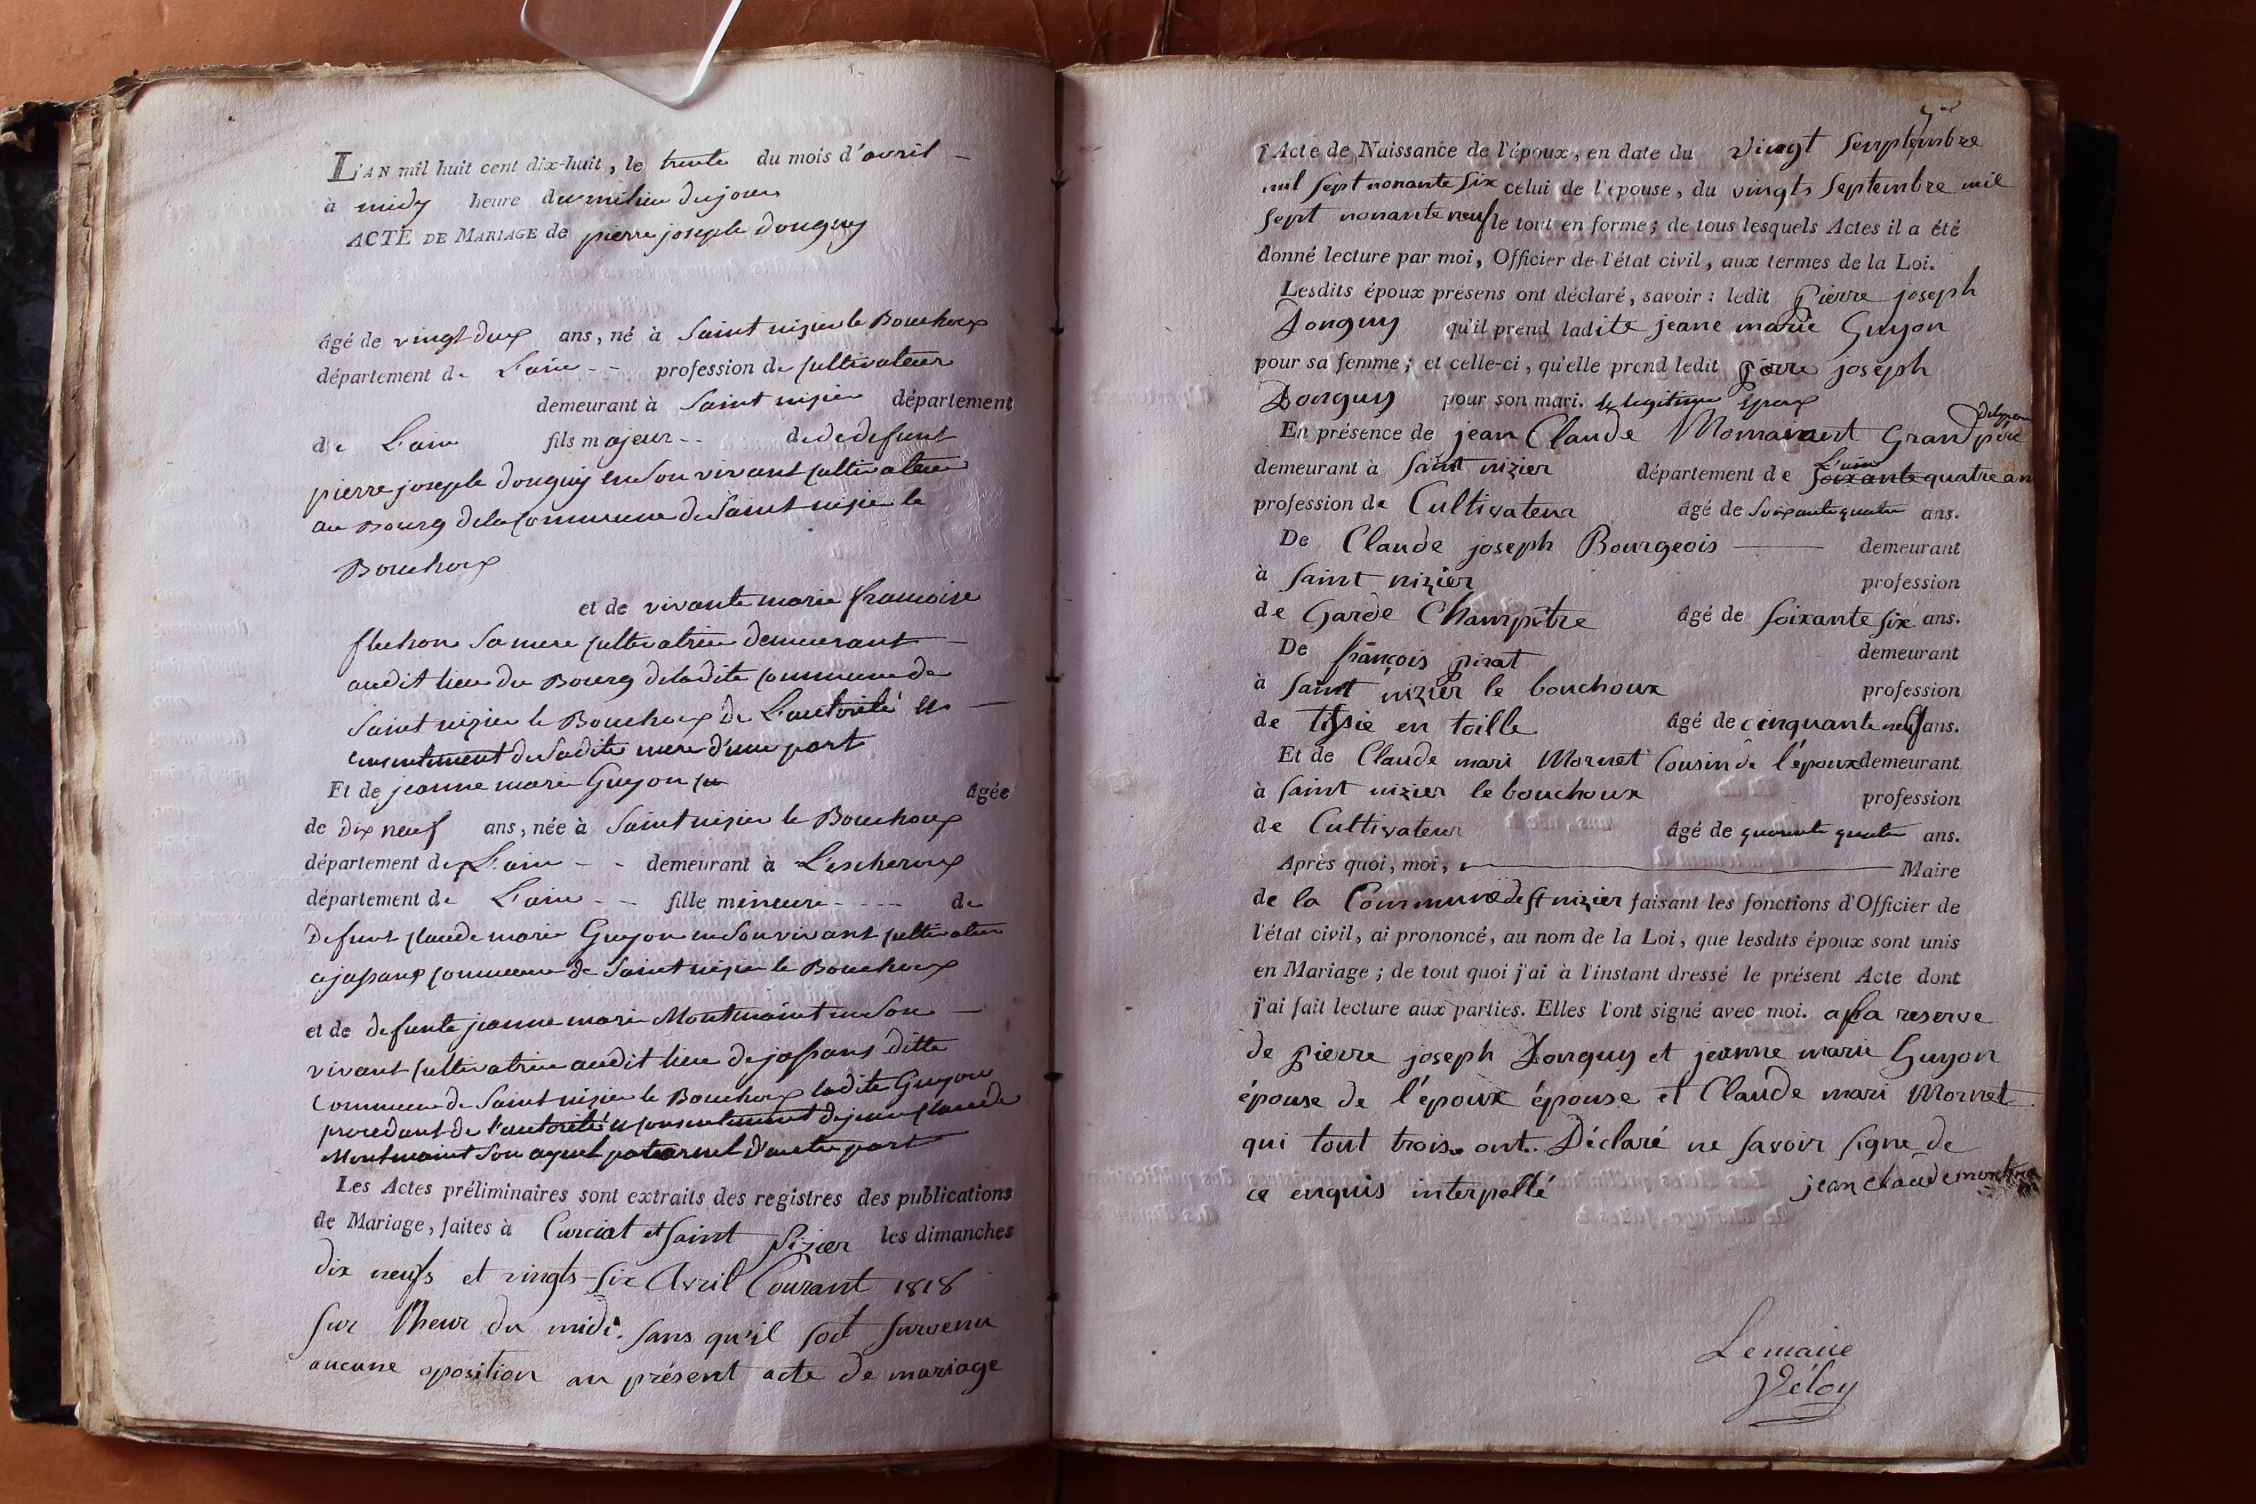 L'AN mil huit cent dix-huit, le trente du mois d'avril
à midy heure du milieu du jour
ACTE DE MARIAGE de pierre joseph donguy
âgé de vingt deux ans, né à Saint nizier le Bouchoux
département de L'ain profession de cultivateur
demeurant à Saint nizier département
de L'ain fils majeur de de defunt
pierre joseph donguy en son vivant cultivateur
au Bourg de la commune de Saint nizier le
Bouchoux
et de vivante marie francoise
sa mere cultivatrice demeurant
audit lieu du Bourg de ladite commune de
Saint nizier le Bouchoux de L'autorité et
consentement de sadite mere d'une part
Et de jeanne marie Guyon âgée
de dix neuf ans, née à Saint nizier le Bouchoux
département de L'ain demeurant à Lescheroux
département de L'ain fille mineure de
defunt claude marie Guyon en son vivant cultivateur
a jassans commune de Saint nizier le Bouchoux
et de defunte jeanne marie Montmaint en son
vivant cultivatrice audit lieu de jassans ditte
commune de Saint nizier le Bouchoux ladite Guyon
procedant de l'autorité et consentement de jean claude
Montmaint son ayeul paternel d'autre part
Les Actes préliminaires sont extraits des registres des publications
de Mariage, faites à Curciat et Saint Nizier les dimanches
dix neufs et vingts-six Avril Courant 1818
sur l'heur du midi. sans qu'il soit survenu
aucune oposition au présent acte de mariage
l'Acte de Naissance de l'époux, en date du vingt Semptembre
mil sept nonante six celui de l'épouse, du vingts septembre mil
sept nonante neuf le tout en forme; de tous lesquels Actes il a été
donné lecture par moi, Officier de l'état civil, aux termes de la Loi.
Lesdits époux présens ont déclaré, savoir : ledit Pierre joseph
Donguy qu'il prend ladite jeane marie Guyon
pour sa femme; et celle-ci, qu'elle prend ledit pierre joseph
Donguy pour son mari. & legitime Epoux
En présence de jean Claude Momavant Grand père
demeurant à Saint nizier département de L'ain soixante quatre an
profession de Cultivateur âgé de soixante quatre ans.
De Claude joseph Bourgeois demeurant
à Saint nizier profession
de Garde Champêtre âgé de soixante six ans.
De françois pirat demeurant
à saint nizier le bouchoux profession
de tissie en toille âgé de cinquante neuf ans.
Et de Claude mari Mornet Cousin de l'époux demeurant
à saint nizier le bouchoux profession
de Cultivateur âgé de quarente quatre ans.
Après quoi, moi, Maire
de la Commune de St nizier faisant les fonctions d'Officier de
l'état civil, ai prononcé, au nom de la Loi, que lesdits époux sont unis
en Mariage; de tout quoi j'ai à l'instant dressé le présent Acte dont
j'ai fait lecture aux parties. Elles l'ont signé avec moi. a la reserve
de pierre joseph Donguy et jeanne marie Guyon
épouse de l'époux épouse et Claude mari Mornet
qui tout trois ont Déclaré ne savoir signe de
ce enquis interpellé jean claude
Lemaire
Véloy